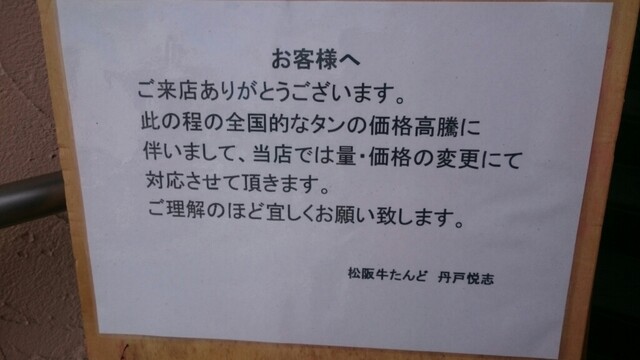 お客様へ
ご来店ありがとうございます。
此の程の全国的なタンの価格高騰に
伴いまして、当店では量・価格の変更にて
対応させて頂きます。
ご理解のほど宜しくお願い致します。
松阪牛たんど 丹戸悦志